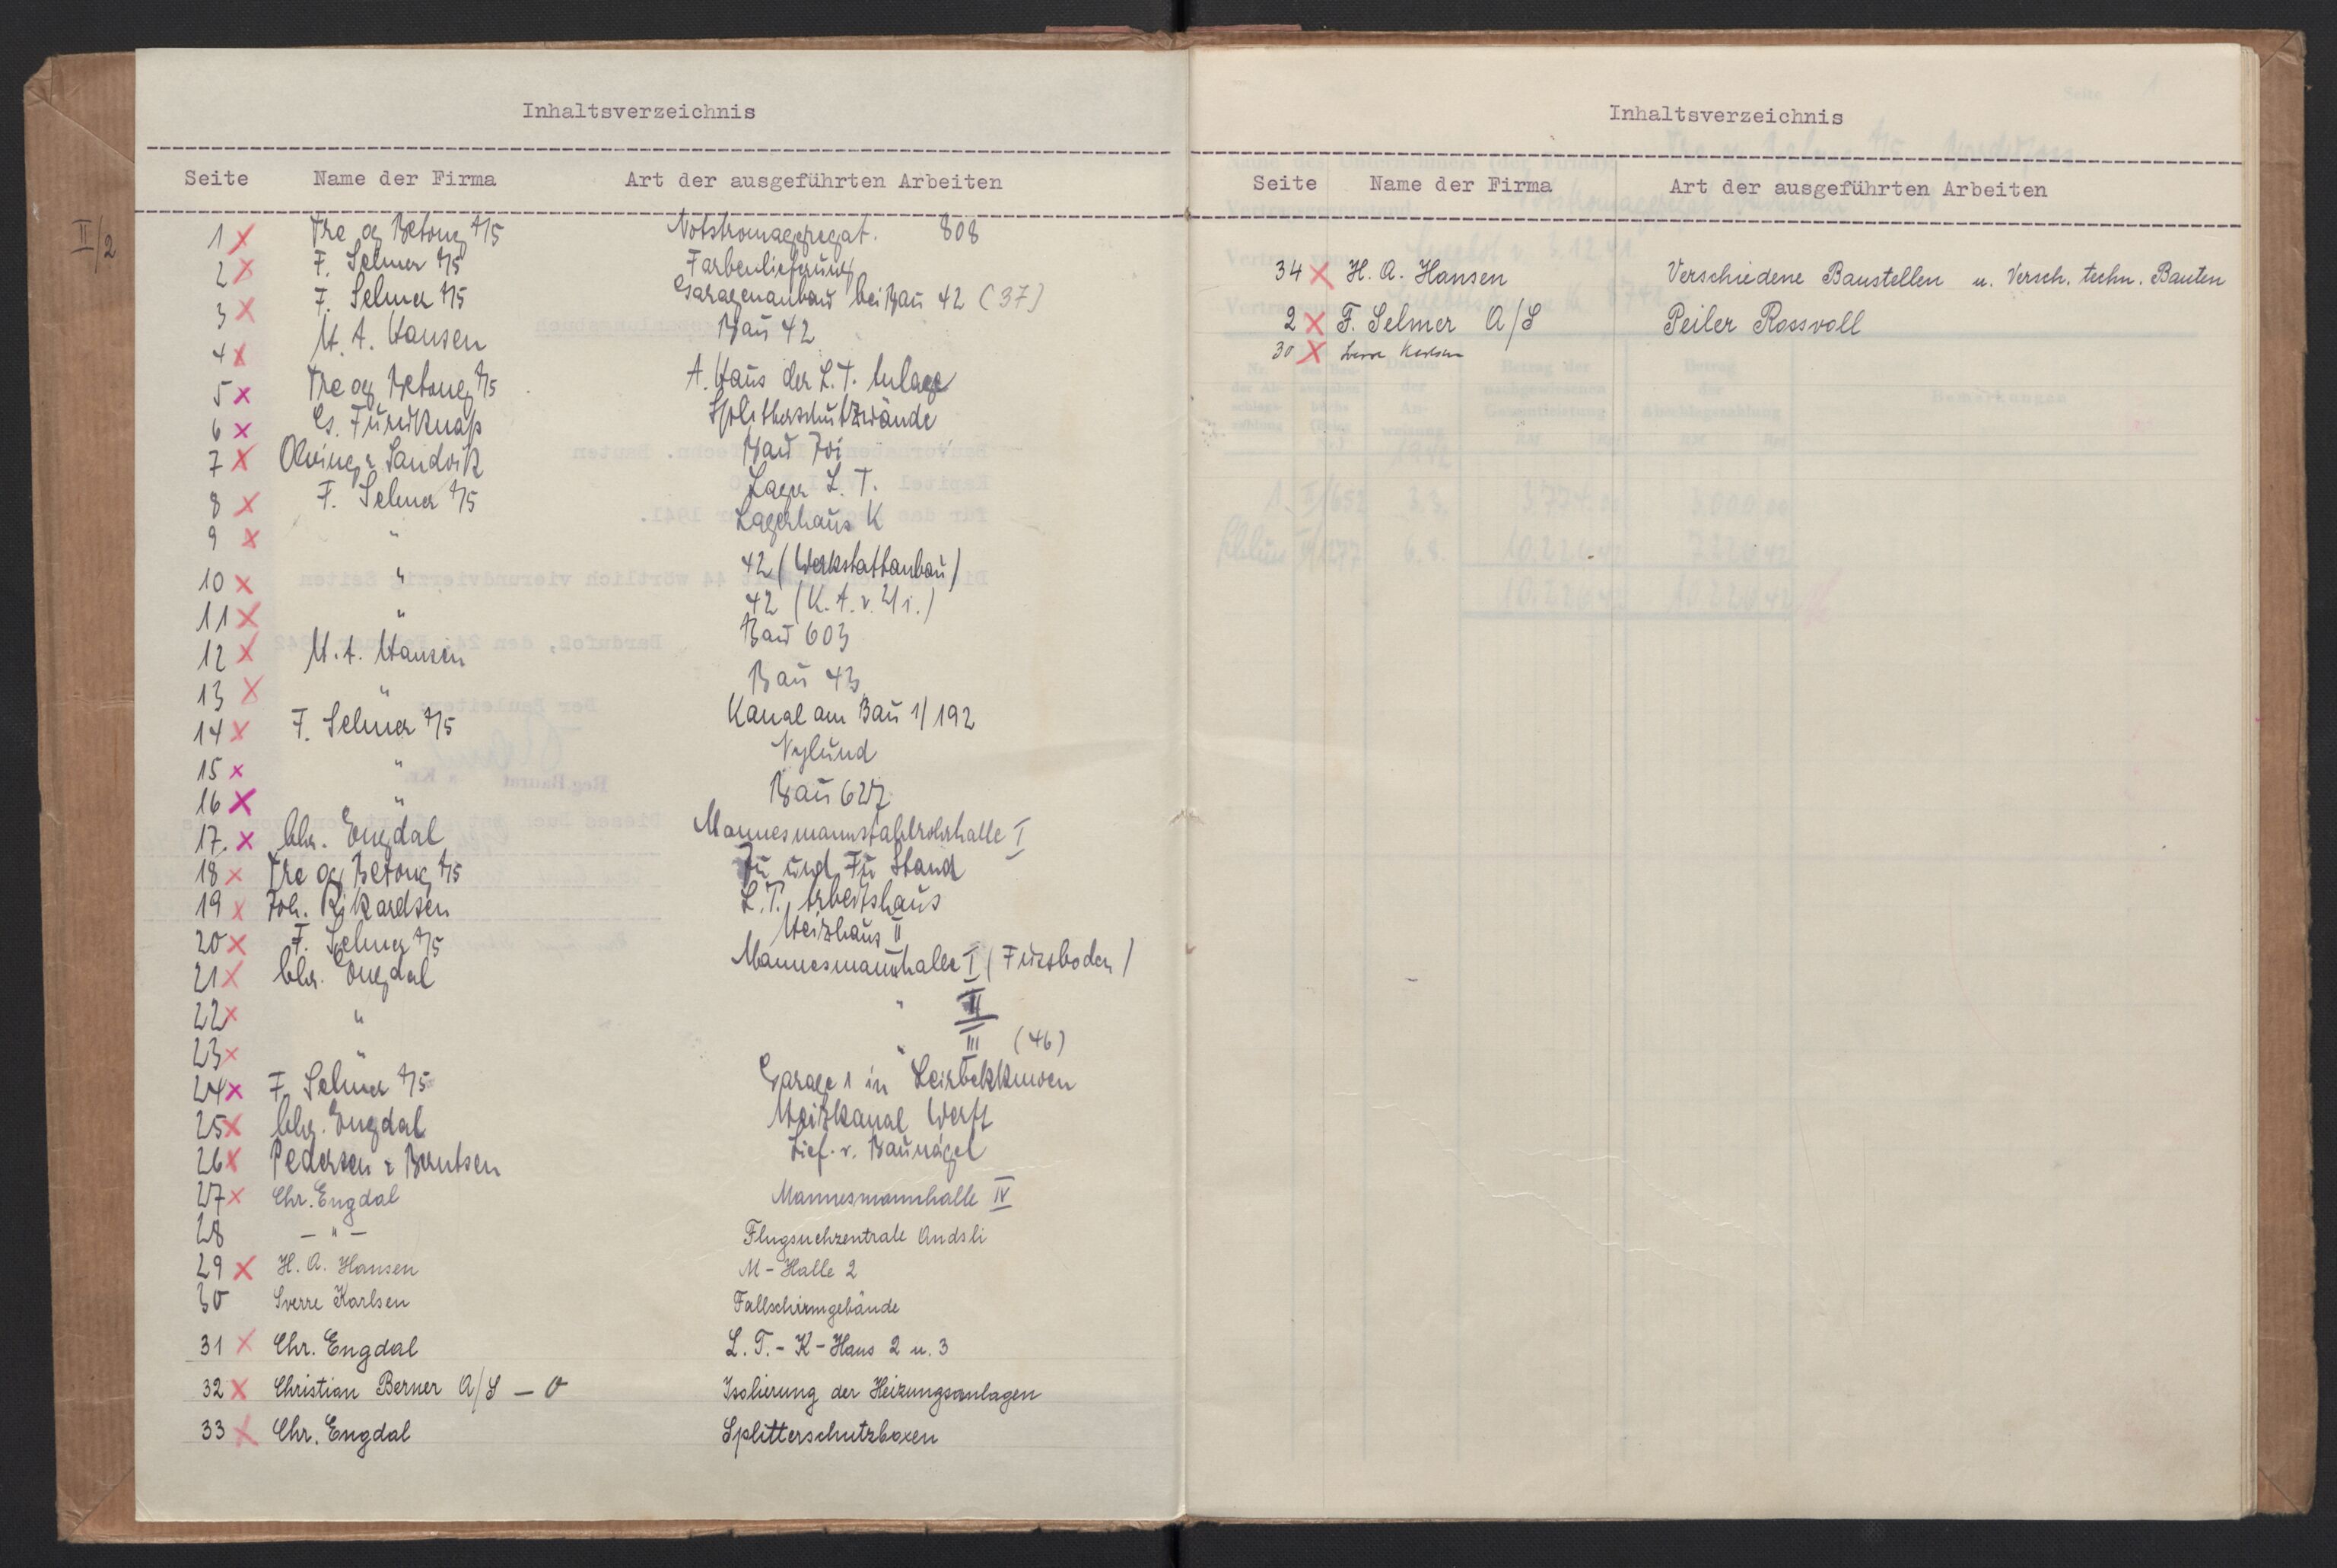 II/2
Inhaltsverzeichnis
Seite Name der Firma Art der ausgeführten Arbeiten
1 x Tre og Betong A/S Notstromaggregat. 808
2 x F. Selmer A/S Farbenlieferung
3 x F. Selmer A/S Garagenanbau bei Bau 42 (37)
4 x H. A. Hansen Bau 42
5 x Tre og Betong A/S A. Haus der L.T. Anlage
6 x Cs. Furuknap Splitterschutzwände
7 x Olving & Sandvik Bau 701
8 x F. Selmer A/S Lager L. T.
9 x " Lagerhaus K
10 x " 42 (Werkstattanbau)
11 x " 42 (K. A. v. )
12 x H. A. Hansen Bau 603
13 x " Bau 43
14 x F. Selmer A/S Kanal am Bau 1/192
15 x " Nylund
16 x " Bau 627
17. x Chr. Engdal Mannesmannstahlrohrhalle I
18 x Tre og Betong A/S Fu und Fu Stand
19 x Joh. Rikardsen L.T. Arbeitshaus
20 x F. Selmer A/S Heizhaus II
21 x Chr. Engdal Mannesmannhalle I (Fussboden)
22 x " " II
23 x " " III (46)
24 x F. Selmer A/S Garage 1 in Leirbekkmoen
25 x Chr. Engdal Heizkanal Werft
26 x Pedersen & Berntsen Lief. v. Baunägel
27 x Chr. Engdal Mannesmannhalle IV
28 — " — Flugsuchzentrale Andsli
29 x H. A. Hansen M - Halle 2
30 Sverre Karlsen Fallschirmgebäude
31 x Chr. Engdal L. T. - K - Haus 2 u. 3
32 x Christian Berner A/S — O Isolierung der Heizungsanlagen
33 x Chr. Engdal Splitterschutzboxen
Inhaltsverzeichnis
Seite Name der Firma Art der ausgeführten Arbeiten
34 x H. A. Hansen Verschiedene Baustellen u. Versch. techn. Bauten
2 x F. Selmer A/S Peiler Rossvoll
30 x Sverre Karlsen